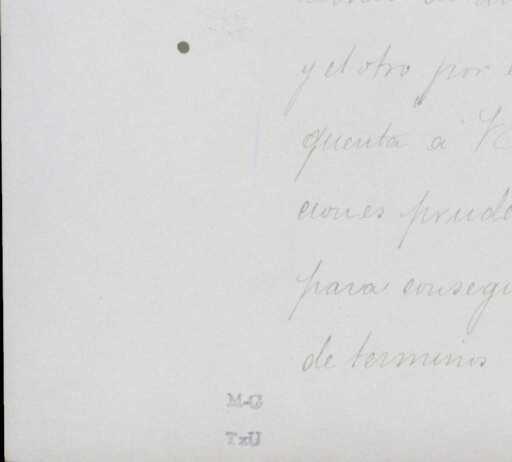 y el otro por
quenta a
ciones prude
para consegu
de terminos
M-G
TxU